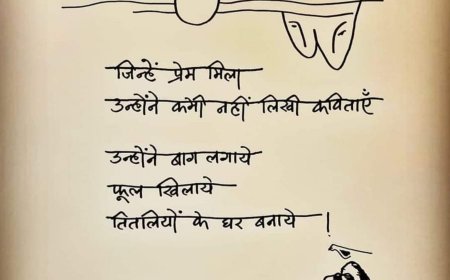 जिन्हें प्रेम मिला
उन्होंने कभी नहीं लिखी कविताएँ
उन्होंने बाग लगाये
फूल खिलाये
तितलियों के घर बनाये !